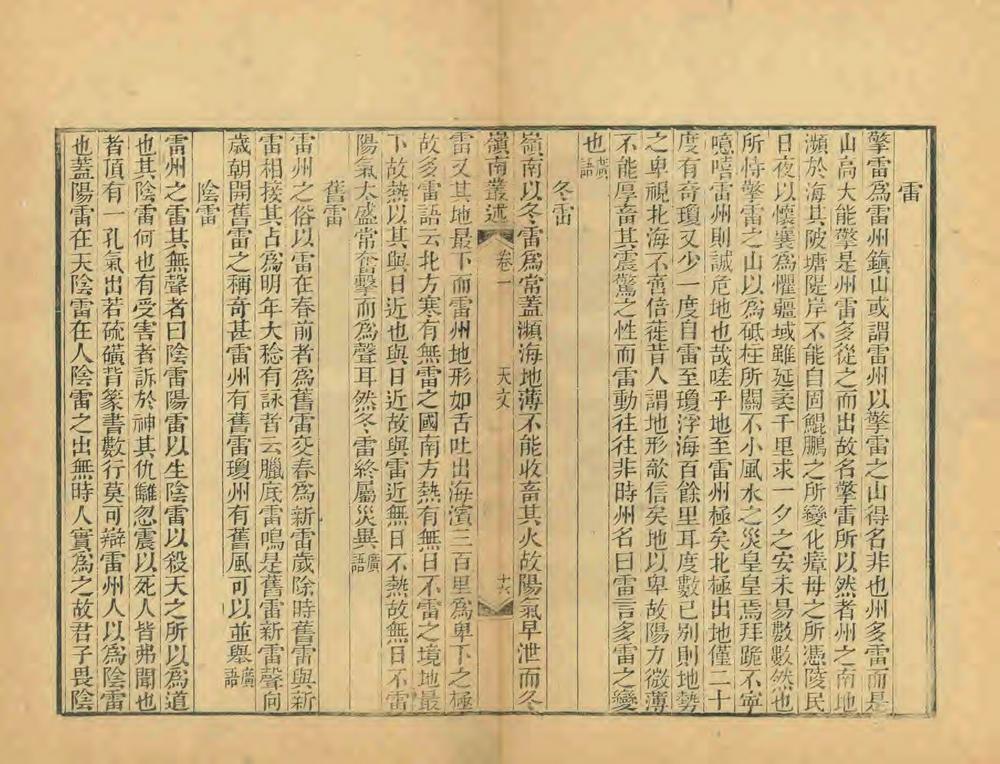 雷
擎雷為雷州鎮山或謂雷州以擎雷之山得名非也州多雷而是
山高大能擎是州雷多從之而出故名擎雷所以然者州之南地
瀕於海其陂塘隄岸不能自固鯤鵬之所變化瘴母之所憑陵民
日夜以懷襄為懼疆域雖延袤千里求一夕之安未易數數然也
所恃擎雷之山以為砥柱所關不小風水之災皇皇焉拜跪不寧
噫嘻雷州則誠危地也哉嗟乎地至雷州極矣北極出地僅二十
度有奇瓊又少一度自雷至瓊浮海百餘里耳度數已別則地勢
之卑視北海不啻倍蓰昔人謂地形欹信矣地以卑故陽力微薄
不能厚畜其震驚之性而雷動往往非時州名曰雷言多雷之變
也廣語
冬雷
嶺南以冬雷為常蓋瀕海地薄不能收畜其火故陽氣早泄而冬
嶺南叢述 卷一 天文 十六
雷又其地最下而雷州地形如舌吐出海濱三百里為卑下之極
故多雷語云北方寒有無雷之國南方熱有無日不雷之境地最
下故熱以其與日近也與日近故與雷近無日不熱故無日不雷
陽氣太盛常奮擊而為聲耳然冬雷終屬災異廣語
舊雷
雷州之俗以雷在春前者為舊雷交春為新雷歲除時舊雷與新
雷相接其占為明年大稔有詠者云臘底雷鳴是舊雷新雷聲向
歲朝開舊雷之稱奇甚雷州有舊雷瓊州有舊風可以並舉廣語
陰雷
雷州之雷其無聲者曰陰雷陽雷以生陰雷以殺天之所以為道
也其陰雷何也有受害者訴於神其仇讎忽震以死人皆弗聞也
者頂有一孔氣出若硫磺背篆書數行莫可辯雷州人以為陰雷
也蓋陽雷在天陰雷在人陰雷之出無時人實為之故君子畏陰